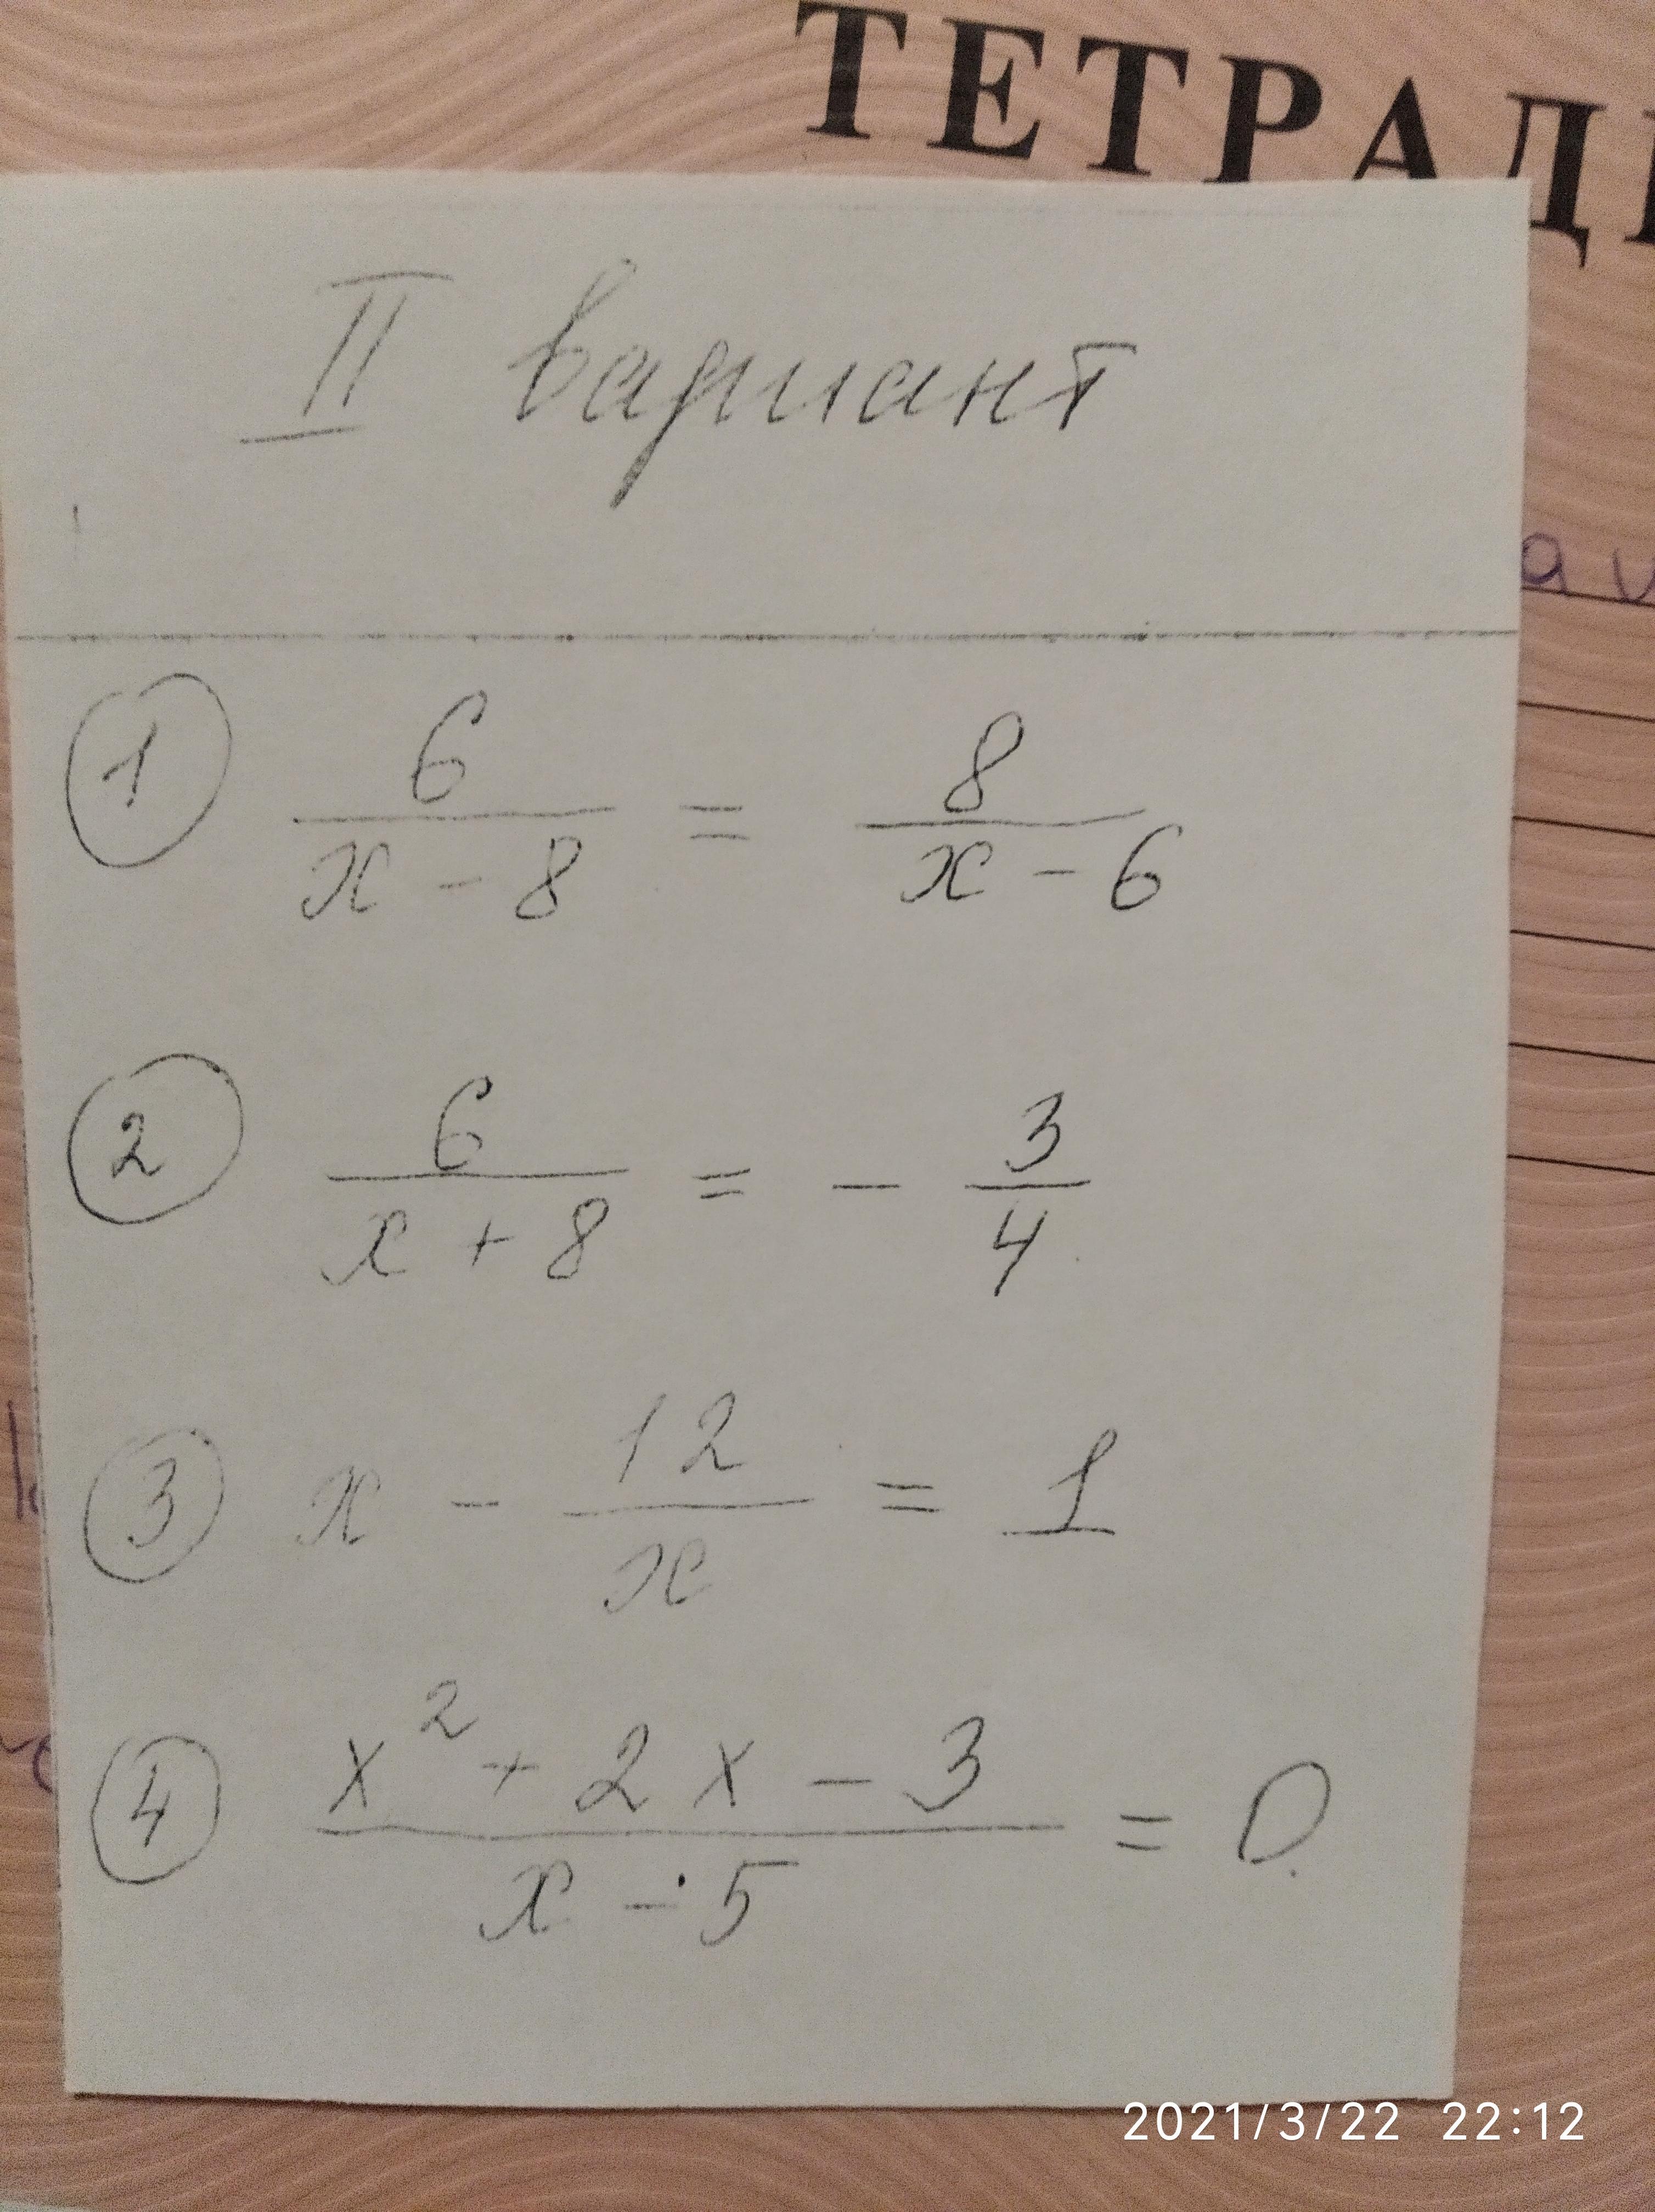 ТЕТРАД
II вариант
① 6/(x - 8) = 8/(x - 6)
② 6/(x + 8) = - 3/4
③ x - 12/x = 1
④ (x² + 2x - 3)/(x - 5) = 0
2021/3/22 22:12